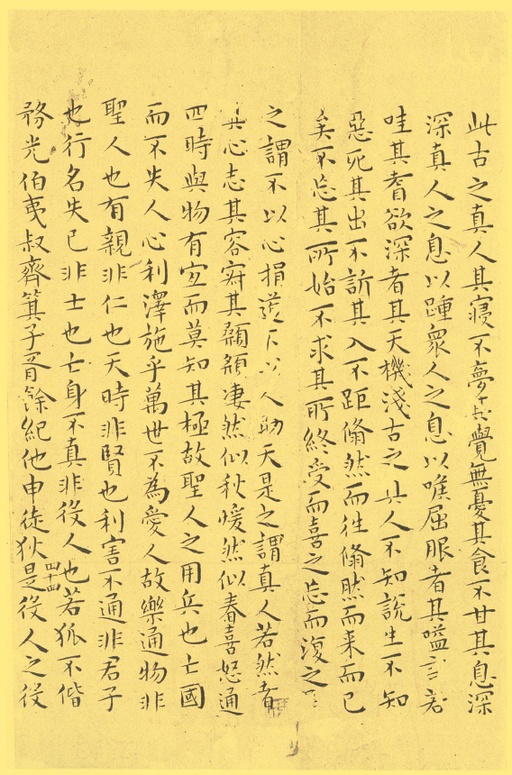 此古之真人其寢不夢其覺無憂其食不甘其息深
深真人之息以踵衆人之息以喉屈服者其嗌言若
哇其耆欲深者其天機淺古之真人不知說生不知
惡死其出不訢其入不距翛然而往翛然而来而已
矣不忘其所始不求其所終受而喜之忘而復之
之謂不以心捐道不以人助天是之謂真人若然者
其心志其容寂其顙頯凄然似秋煖然似春喜怒通
四時與物有宜而莫知其極故聖人之用兵也亡國
而不失人心利澤施乎萬世不為愛人故樂通物非
聖人也有親非仁也天時非賢也利害不通非君子
也行名失己非士也亡身不真非役人也若狐不偕
務光伯夷叔齊箕子胥餘紀他申徒狄是役人之役
四十四